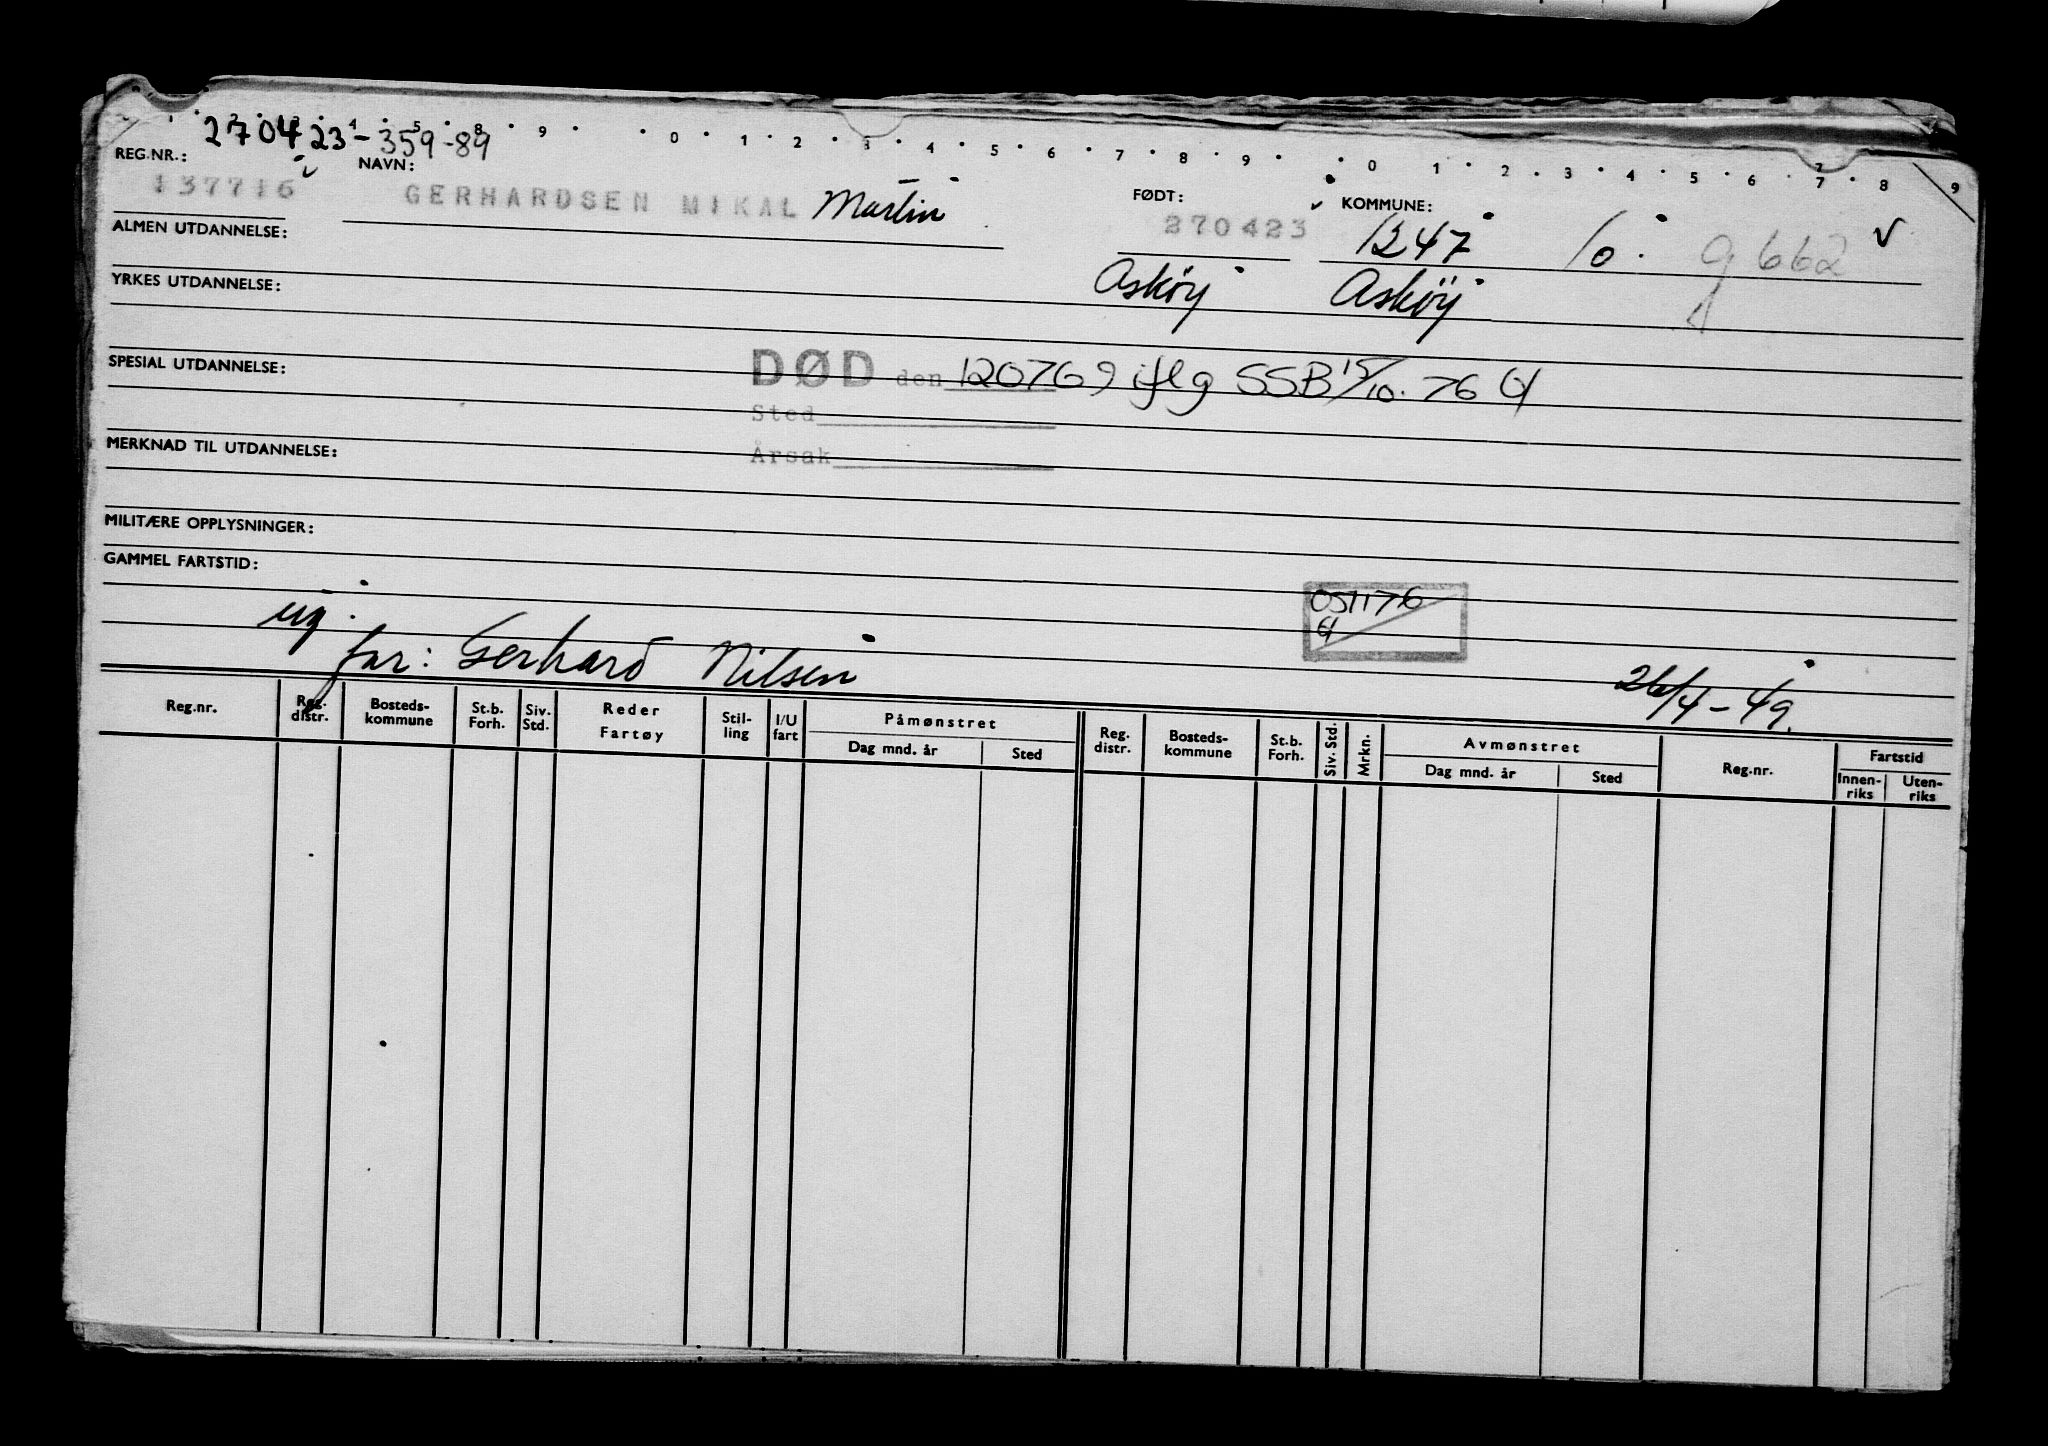 270423-359-89
REG.NR.: NAVN: FØDT: KOMMUNE:
137716 GERHARDSEN MIKAL Martin 270423 1247 10. g 662
ALMEN UTDANNELSE:
Askøy Askøy
YRKES UTDANNELSE:
SPESIAL UTDANNELSE:
DØD den 120769 iflg SSB 15/10.76
Sted
Årsak
MERKNAD TIL UTDANNELSE:
MILITÆRE OPPLYSNINGER:
GAMMEL FARTSTID:
051176
ug.
far: Gerhard Nilsen
26/4-49.
Reg.nr. Reg. distr. Bosteds-kommune St.b. Forh. Siv. Std. Reder Fartøy Stil-ling I/U fart Påmønstret Dag mnd. år Sted Reg. distr. Bosteds-kommune St.b. Forh. Siv. Std. Mrkn. Avmønstret Dag mnd. år Sted Reg.nr. Fartstid Innen-riks Uten-riks